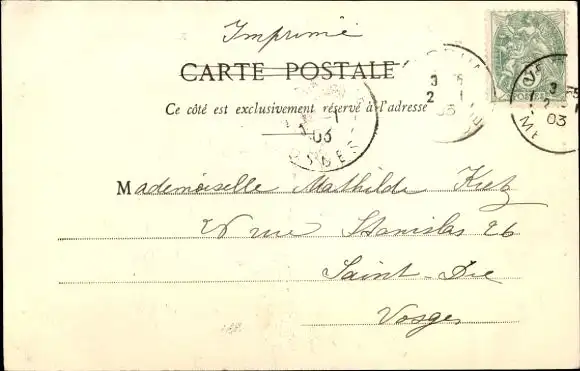 Imprimé
CARTE POSTALE
Ce côté est exclusivement réservé à l'adresse
Mademoiselle Mathilde
rue Stanislas 26
Saint-Die
Vosges
03
3
2
03
3
03